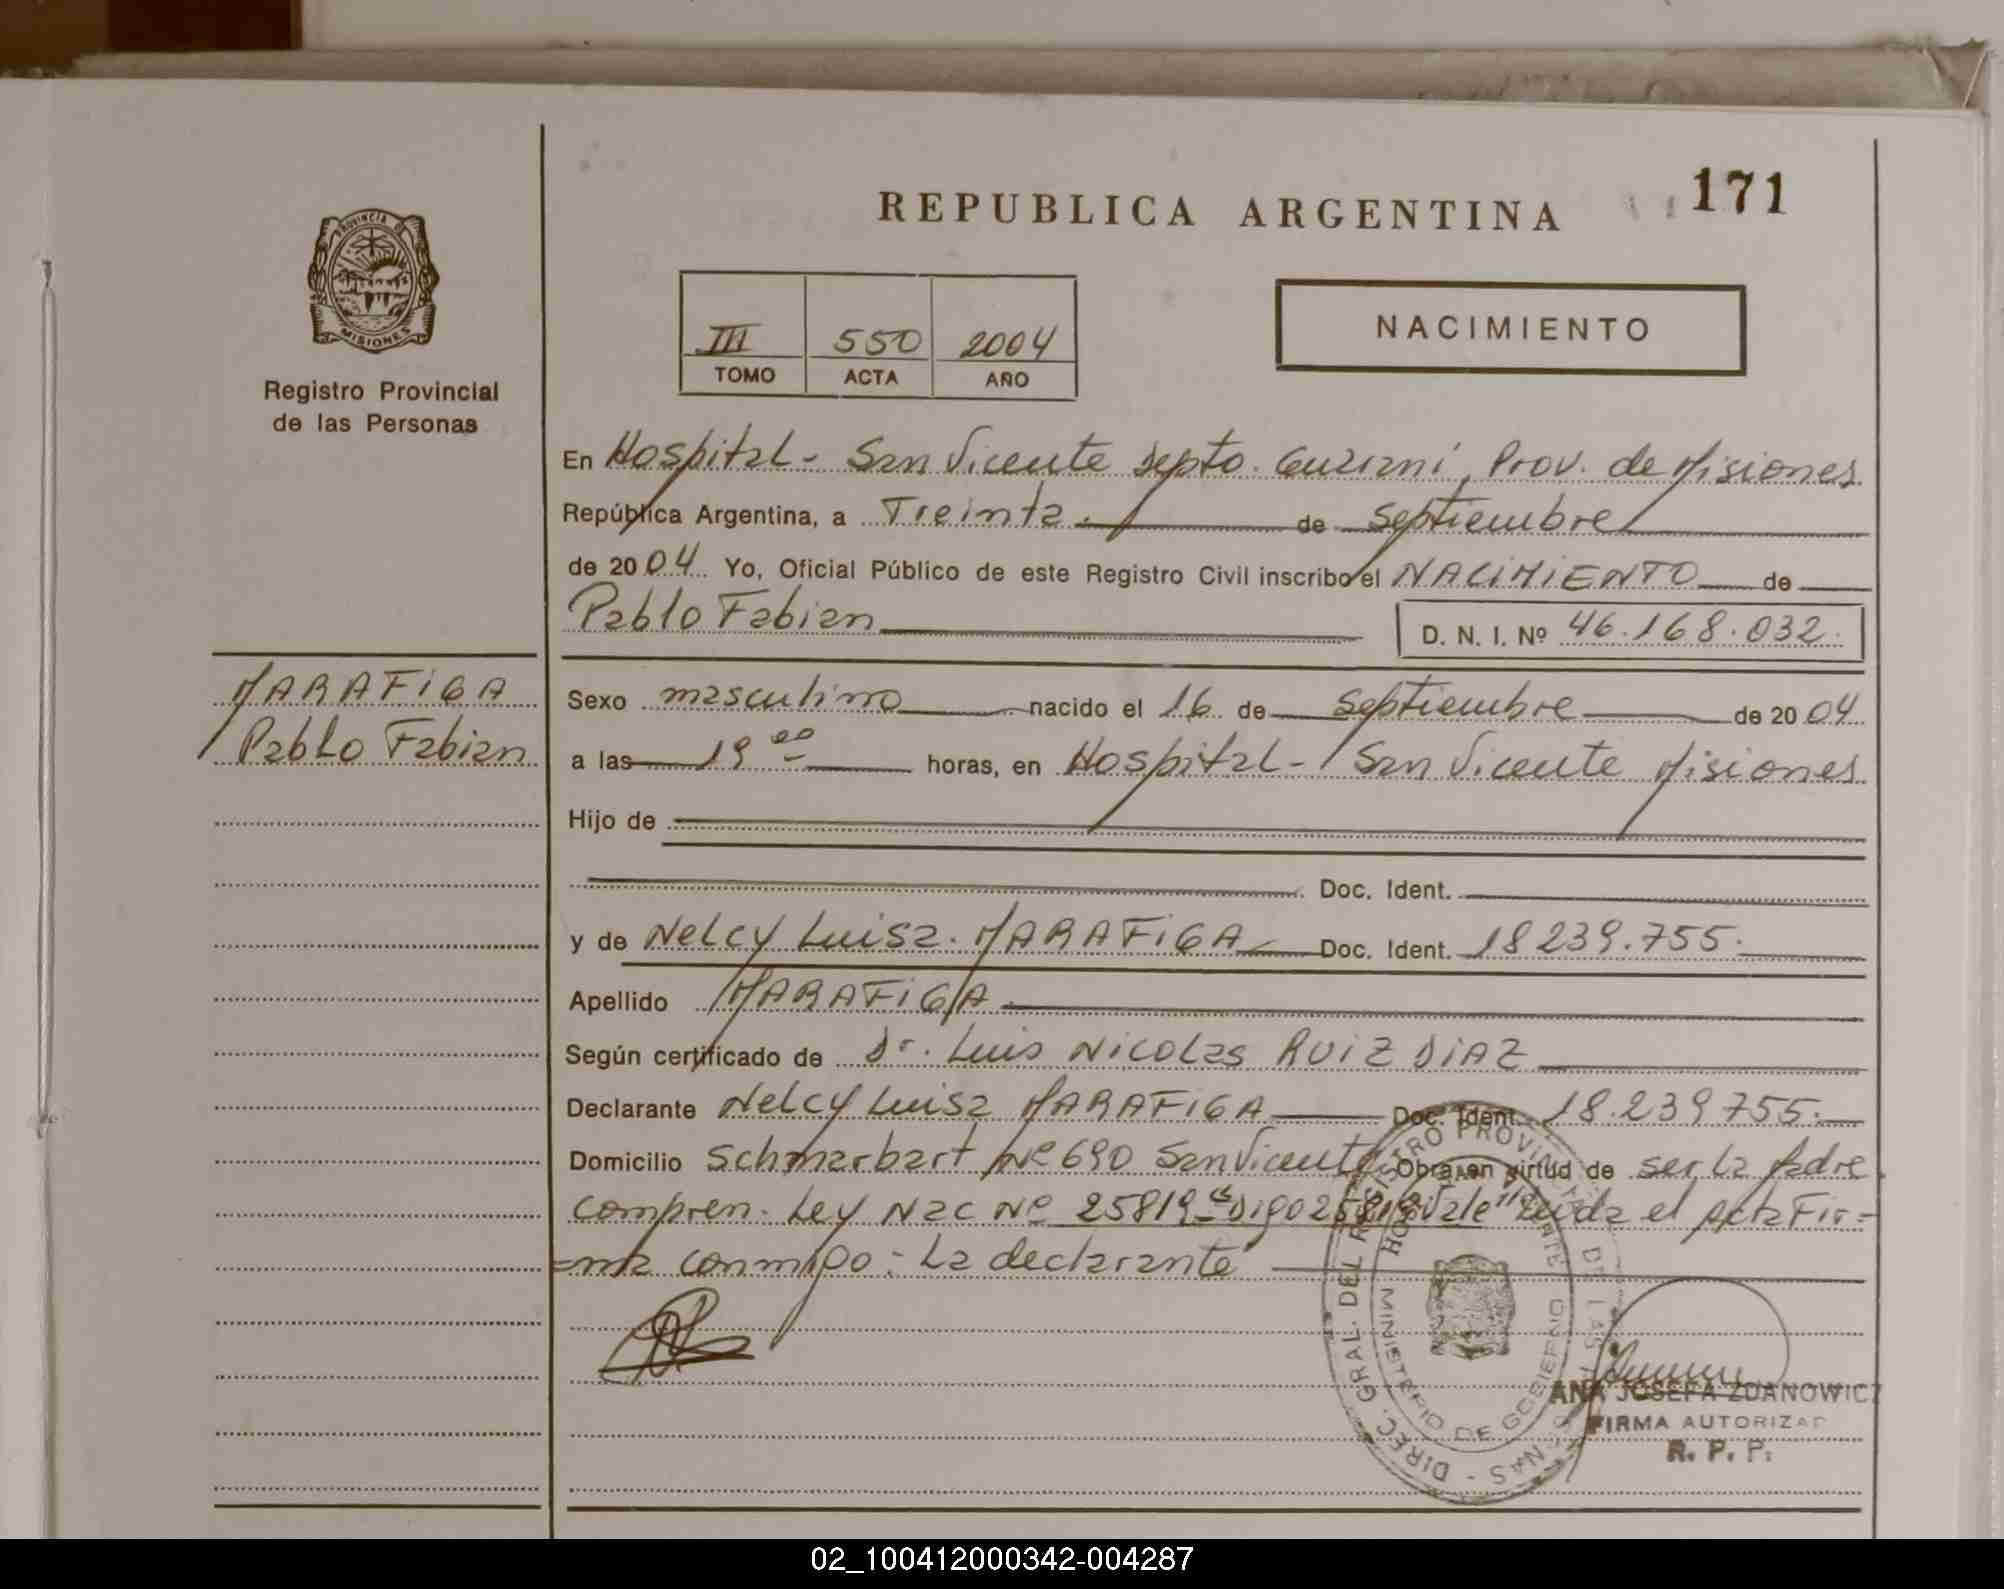 171
REPUBLICA ARGENTINA
PROVINCIA DE
MISIONES
Registro Provincial
de las Personas
NACIMIENTO
III 550 2004
TOMO ACTA AÑO
En Hospital - San Vicente Depto. Guarani, Prov. de Misiones
República Argentina, a Treinta. de Septiembre
de 2004 Yo, Oficial Público de este Registro Civil inscribo el NACIMIENTO de
Pablo Fabian D. N. I. Nº 46.168.032.
MARAFIGA
Pablo Fabian
Sexo masculino nacido el 16 de Septiembre de 2004
a las 19 00 horas, en Hospital - San Vicente Misiones
Hijo de
Doc. Ident.
y de Nelcy Luisa. MARAFIGA Doc. Ident. 18239.755.
Apellido MARAFIGA
Según certificado de Dr. Luis Nicolas RUIZ DIAZ
Declarante Nelcy Luisa MARAFIGA Doc. Ident. 18.239755.
Domicilio Schmarbart Nº 690 San Vicente Obra en virtud de ser la Madre
Compren. Ley Nac Nº 25819 "Digo 25819 Vale" Leida el Acta Fir=
=ma conmigo: La declarante
DIREC. GRAL. DEL REGISTRO PROVINCIAL DE LAS PERSONAS
MINISTERIO DE GOBIERNO
ANA JOSEFA ZDANOWICZ
FIRMA AUTORIZAD
R. P. P.
02_100412000342-004287